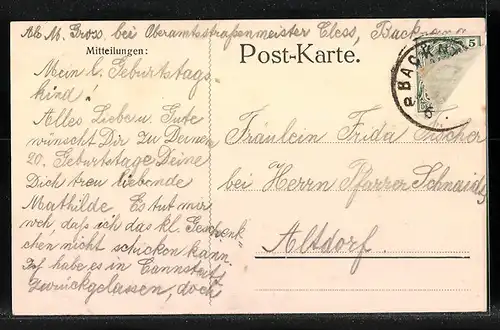 Abs. M. Gross. bei Oberamtsstraßenmeister Cless, Backnang
Mitteilungen:
Post-Karte.
5
BACKN
Mein l. Geburtstags-
kind!
Alles Liebe u. Gute
wünscht Dir zu Deinem
20. Geburtstage Deine
Dich treu liebende
Mathilde Es tut mir
weh, daß ich das kl. Geschenk-
chen nicht schicken kann.
Ich habe es in Cannstatt
zurückgelassen, doch
Fräulein Frida Fischer
bei Herrn Pfarrer Schmid
Altdorf